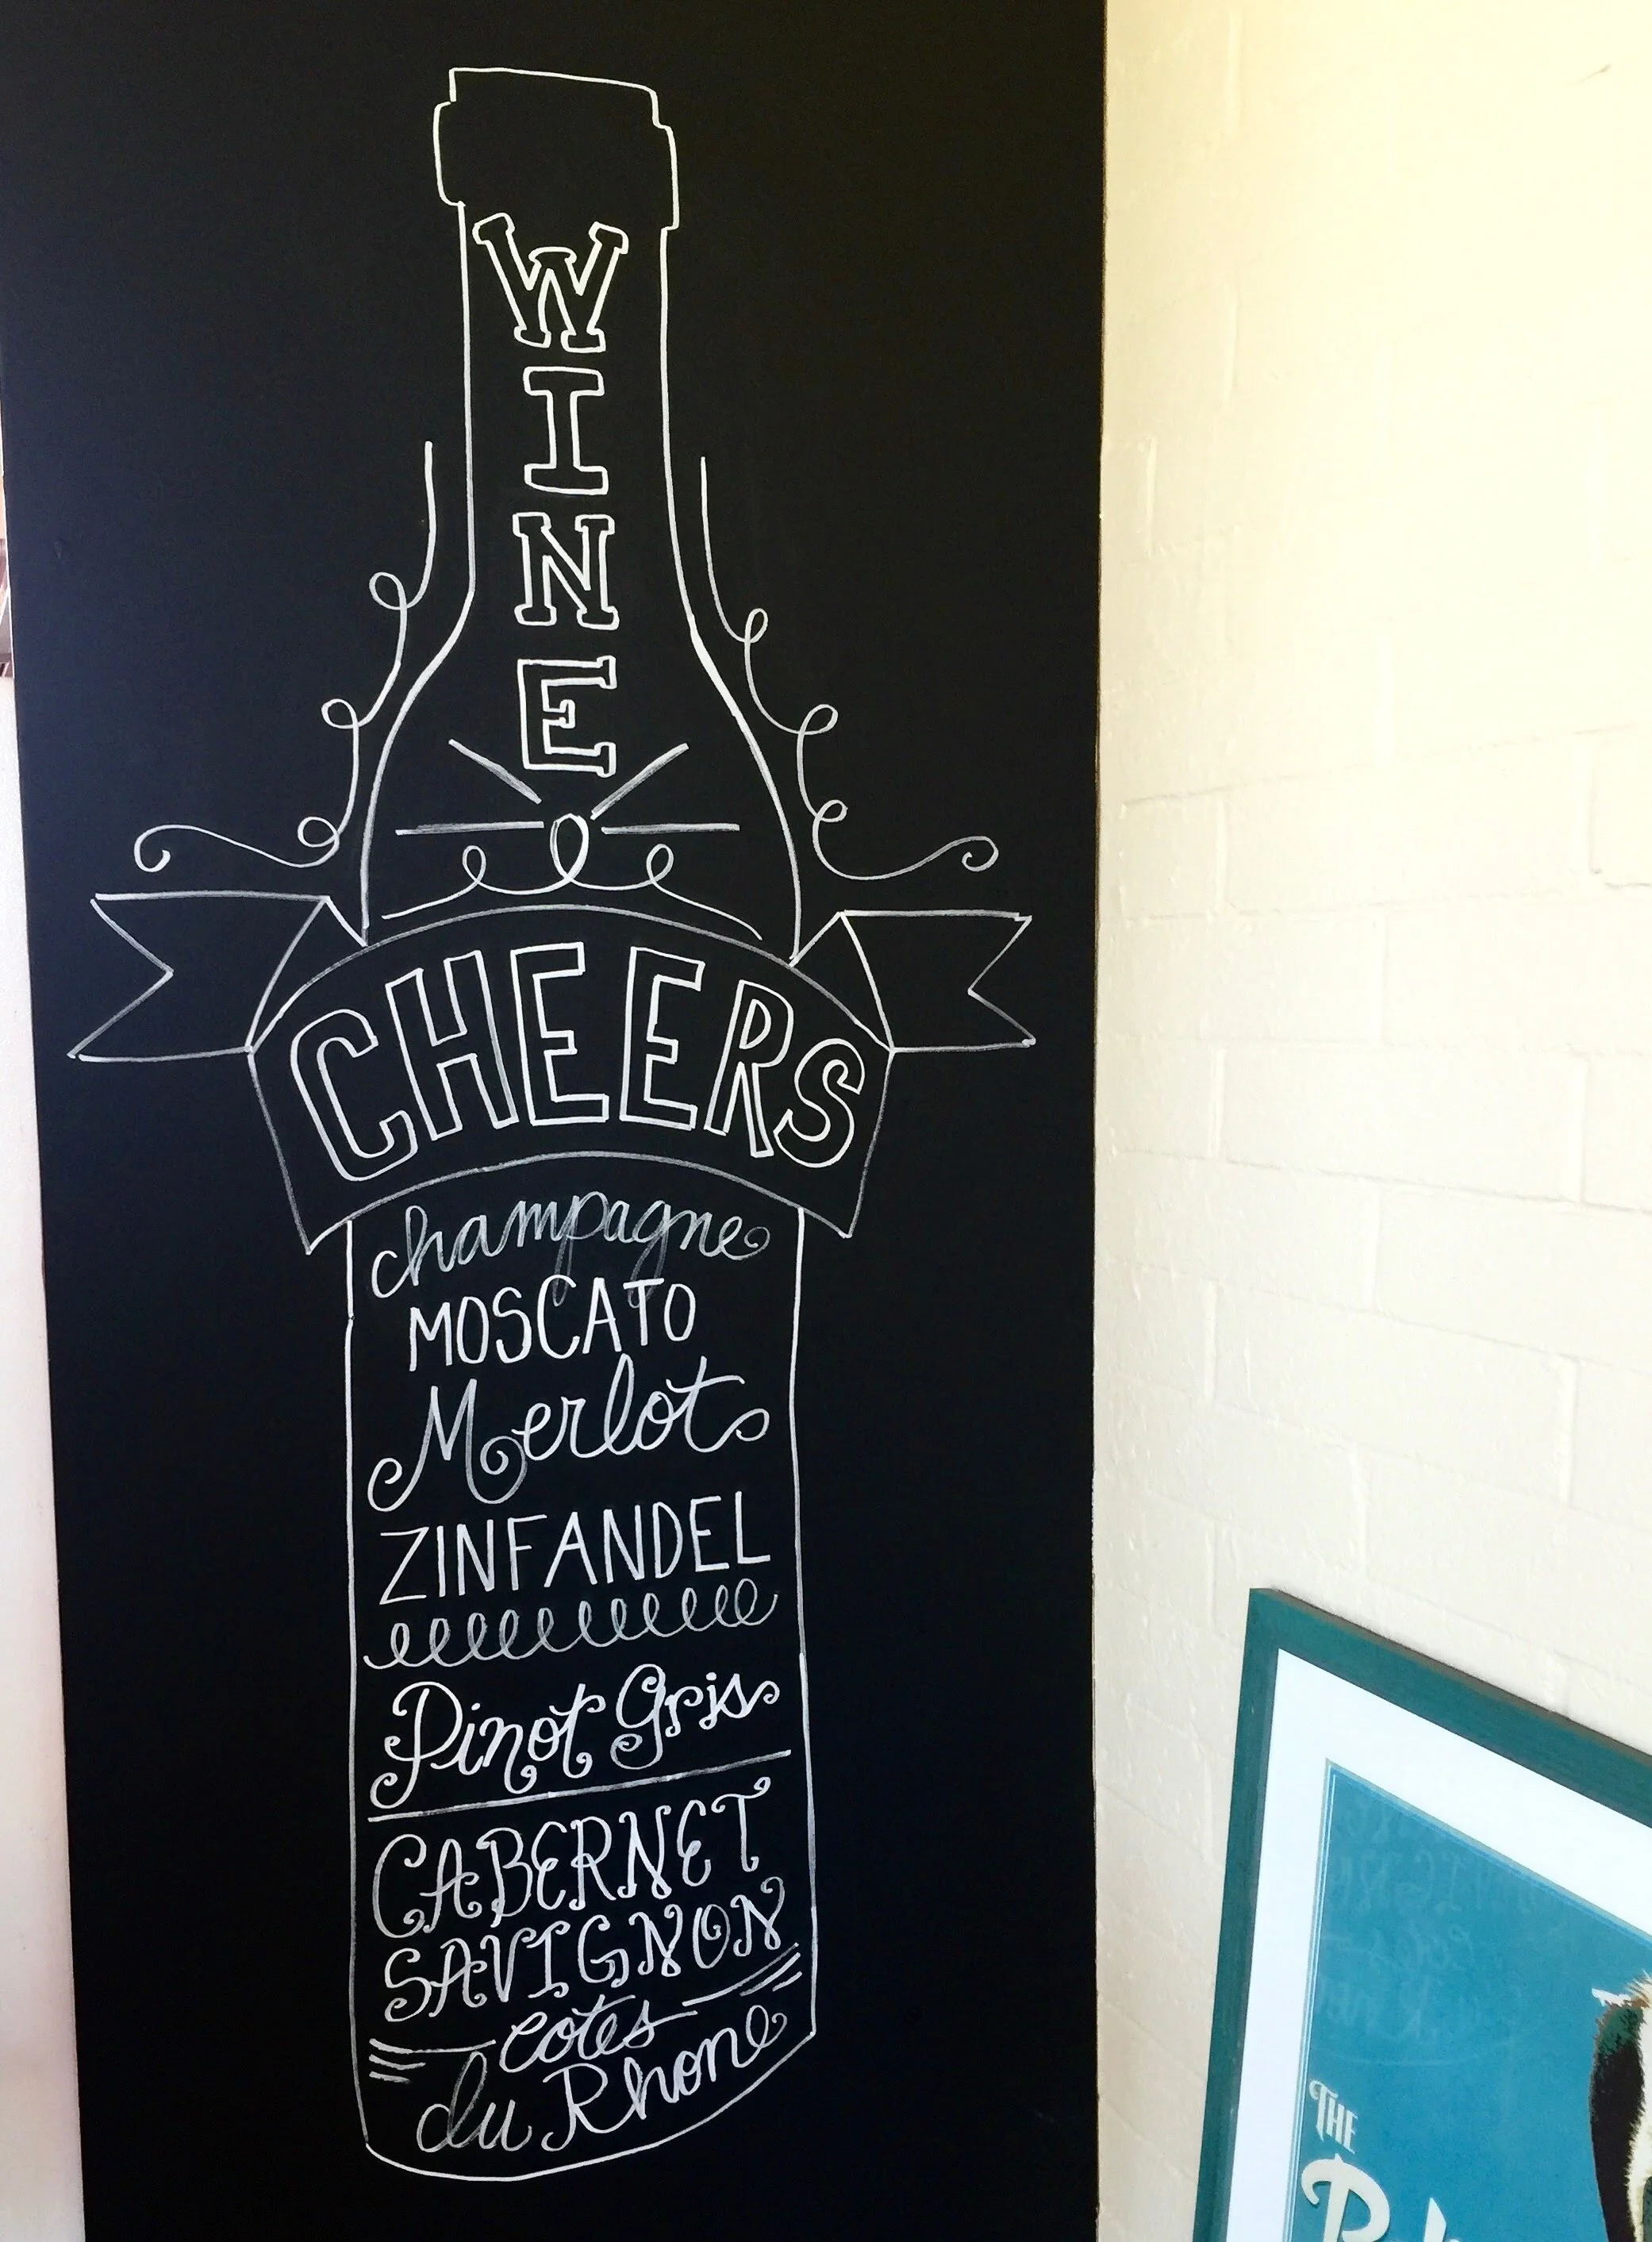 WINE
CHEERS
champagne
MOSCATO
Merlot
ZINFANDEL
Pinot Gris
CABERNET
SAVIGNON
cotes
du Rhone
THE